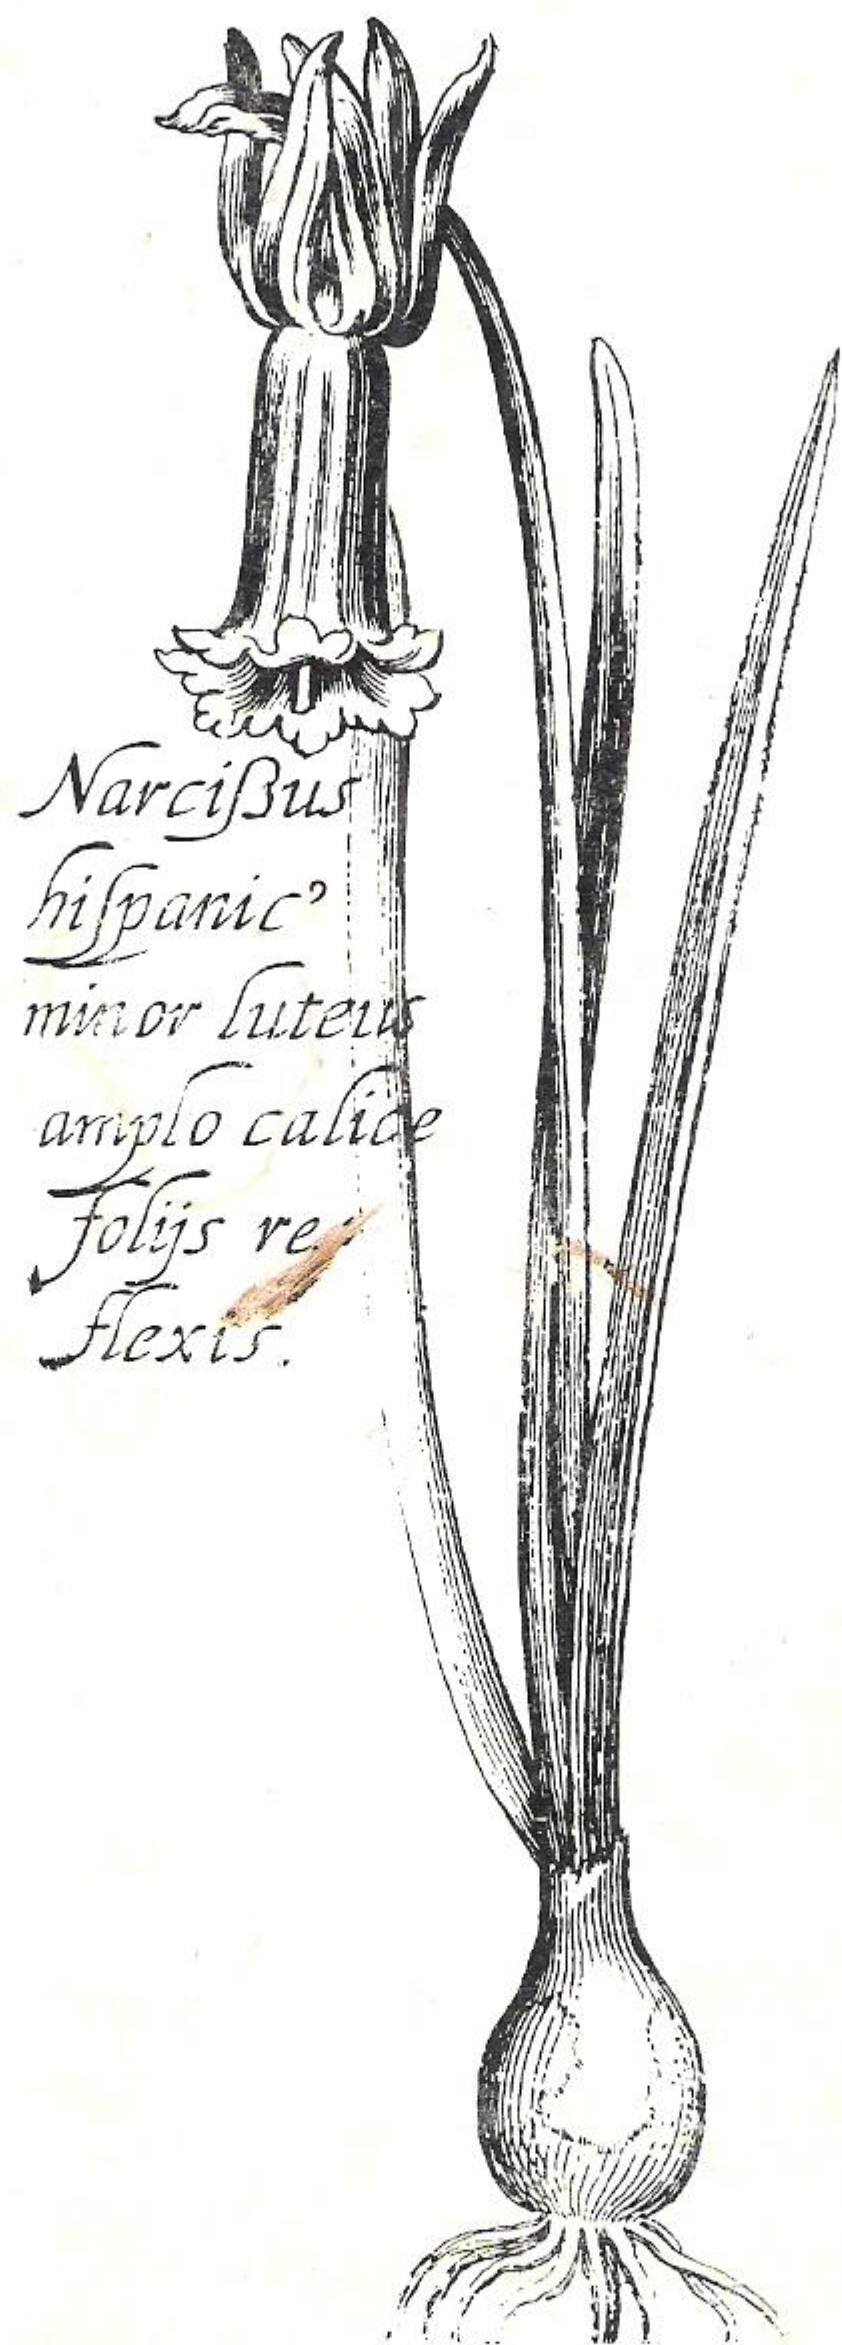 Narcißus
hiſpanic⁹
minor luteus
amplo calice
folijs re⸗
flexis.